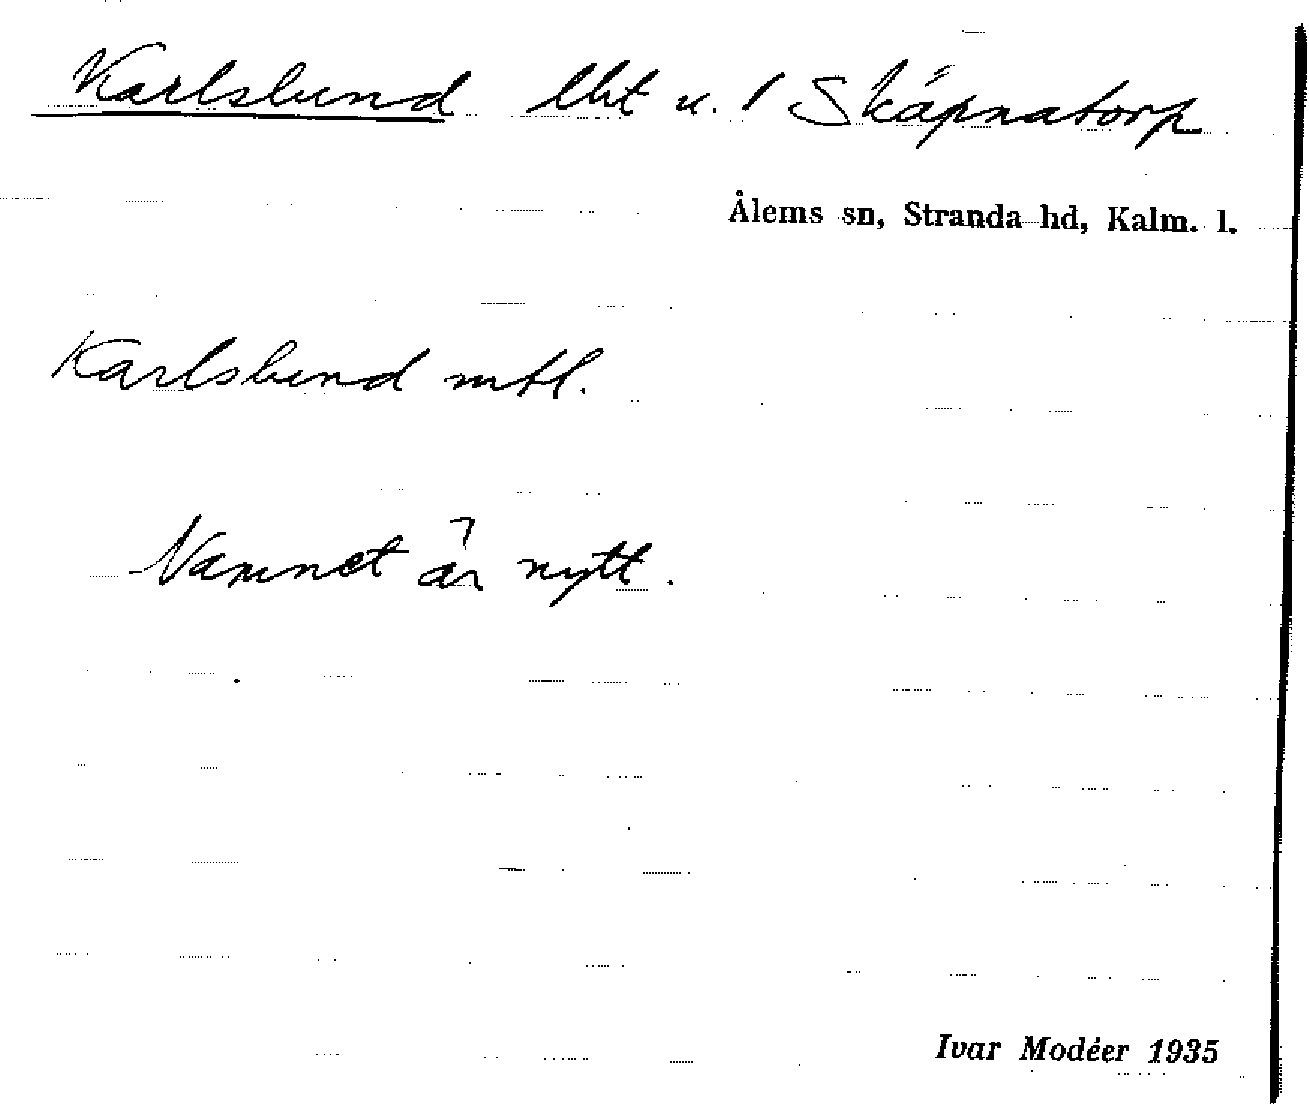 Karlslund lht u. 1 Skäpnatorp
Ålems sn, Stranda hd, Kalm. l.
Karlslund mtl.
Namnet är nytt.
Ivar Modéer 1935